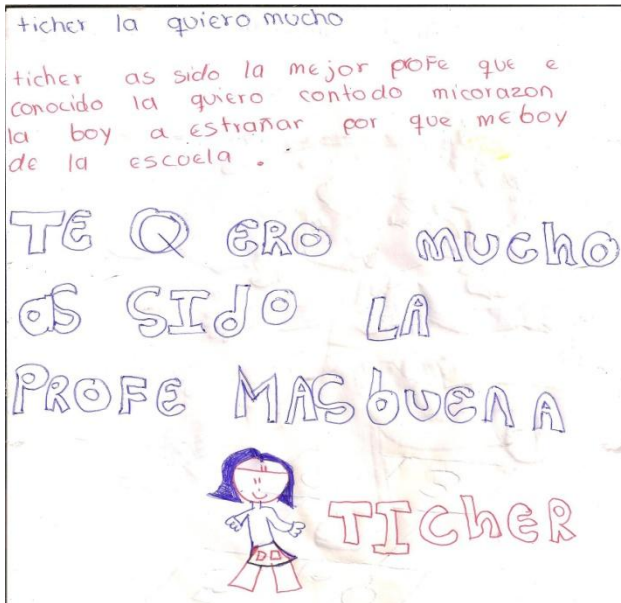 ticher la quiero mucho
ticher as sido la mejor profe que e
conocido la quiero contodo micorazon
la boy a estrañar por que meboy
de la escuela .
TE Q ERO mucho
aS SIdO LA
PROFE MAS bUENA
TIchER